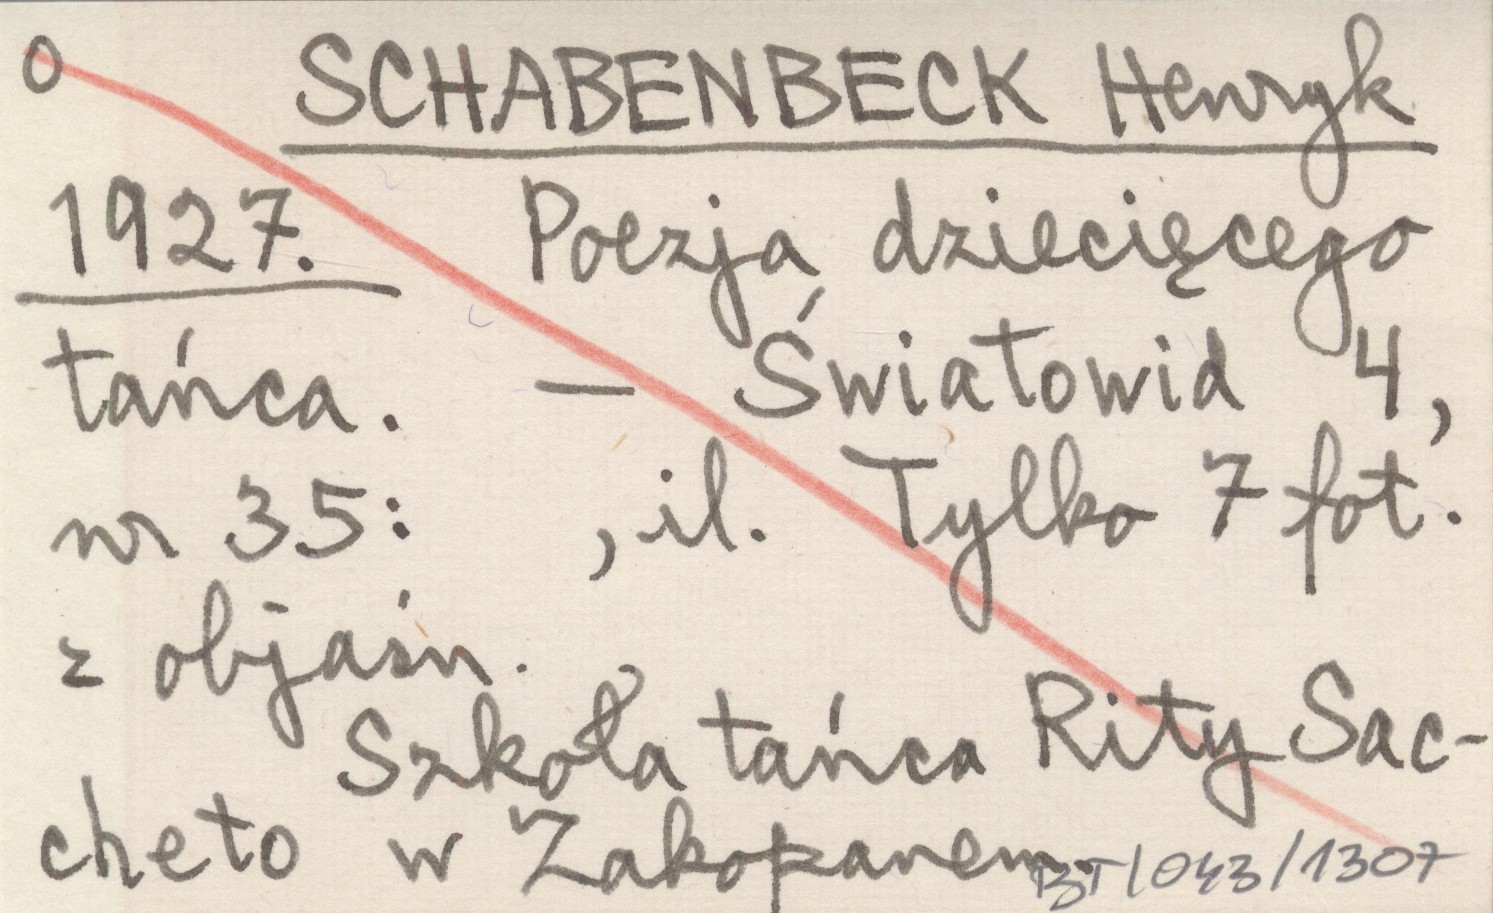 0 SCHABENBECK Henryk
1927. Poezja dziecięcego
tańca. — Światowid 4,
nr 35: , il. Tylko 7 fot.
z objaśn.
Szkoła tańca Rity Sac-
cheto w Zakopanem.
BT/043/1307